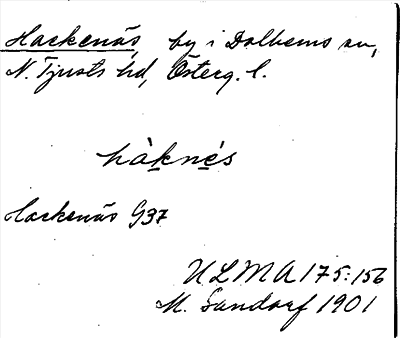 Hackenäs, by i Dalhems sn,
N. Tjusts hd, Österg. l.
hàknés
Hackenäs G37
ULMA 175:156
M. Sandorf 1901